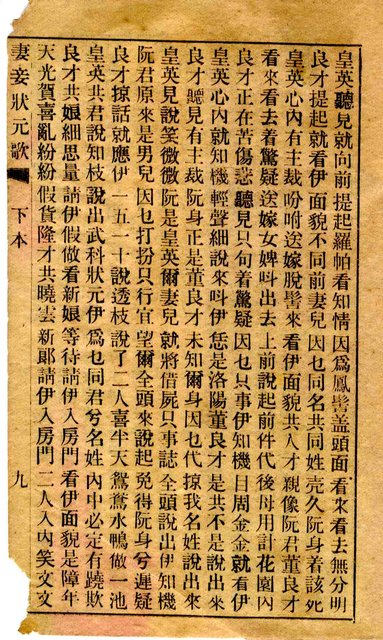 皇英聽見就向前 提起羅帕看知情 因爲鳳髻盖頭面 看來看去無分明
良才提起就看伊 面貌不同前妻兒 因乜同名共同姓 売久阮身着該死
皇英心內有主裁 吩咐送嫁脫髻來 看伊面貌共人才 親像阮君董良才
看來看去着驚疑 送嫁女婢呌出去 上前說起前件代 後母用計花園內
良才正在苦傷悲 聽見只句着驚疑 因乜只事伊知機 目周金金就看伊
皇英心內就知機 輕聲細說來呌伊 恁是洛陽董良才 是共不是說出來
良才聽見有主裁 阮身正是董良才 未知爾身因乜代 掠我名姓說出來
皇英見說笑微微 阮是皇英爾妻兒 就將借屍只事誌 全頭說出伊知機
阮君原來是男兒 因乜打扮只行宜 望爾全頭來說起 免得阮身兮遲疑
良才掠話就應伊 一五一十說透枝 說了二人喜半天 鴛鴦水鴨做一池
皇英共君說知枝 說出武科狀元伊 爲乜同君兮名姓 內中必定有蹺欺
良才共娘細思量 請伊假做看新娘 等待請伊入房門 看伊面貌是障年
天光賀喜亂紛紛 假貨隆才共曉雲 新郞請伊入房門 二人入內笑文文
妻妾狀元歌 下本 九